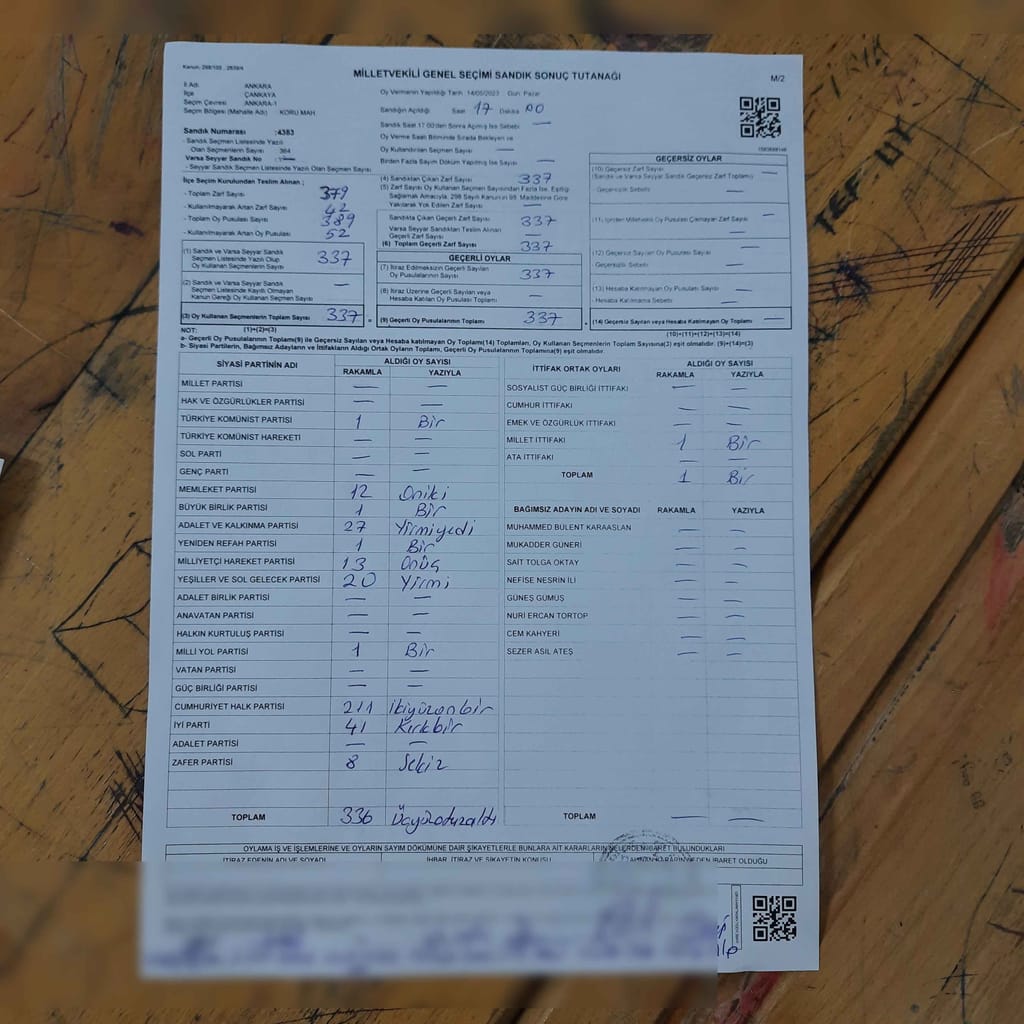 Kanun: 298/105 , 2839/4
MİLLETVEKİLİ GENEL SEÇİMİ SANDIK SONUÇ TUTANAĞI
M/2
İl Adı : ANKARA
İlçe : ÇANKAYA
Seçim Çevresi : ANKARA-1
Seçim Bölgesi (Mahalle Adı) : KORU MAH.
Sandık Numarası :4383
- Sandık Seçmen Listesinde Yazılı
Olan Seçmenlerin Sayısı 364
Varsa Seyyar Sandık No : —
- Seyyar Sandık Listesinde Yazılı Olan Seçmen Sayısı
Oy Vermenin Yapıldığı Tarih: 14/05/2023 Gün: Pazar
Sandığın Açıldığı Saat 17 Dakika 00
Sandık Saat 17:00'den Sonra Açılmış İse Sebebi —
Oy Verme Saati Bitiminde Sırada Bekleyen ve
Oy Kullandırılan Seçmen Sayısı —
Birden Fazla Sayım Döküm Yapılmış İse Sayısı —
İlçe Seçim Kurulundan Teslim Alınan ;
- Toplam Zarf Sayısı 379
- Kullanılmayarak Artan Zarf Sayısı 42
- Toplam Oy Pusulası Sayısı 389
- Kullanılmayarak Artan Oy Pusulası 52
(1) Sandık ve Varsa Seyyar Sandık
Seçmen Listesinde Yazılı Olup
Oy Kullanan Seçmenlerin Sayısı 337
(2) Sandık ve Varsa Seyyar Sandık
Seçmen Listesinde Kayıtlı Olmayan
Kanun Gereği Oy Kullanan Seçmen Sayısı —
(3) Oy Kullanan Seçmenlerin Toplam Sayısı 337
(4) Sandıktan Çıkan Zarf Sayısı 337
(5) Zarf Sayısı Oy Kullanan Seçmen Sayısından Fazla İse, Eşitliği
Sağlamak Amacıyla, 298 Sayılı Kanun'un 98. Maddesine Göre
Yakılarak Yok Edilen Zarf Sayısı
Sandıkta Çıkan Geçerli Zarf Sayısı 337
Varsa Seyyar Sandıktan Teslim Alınan
Geçerli Zarf Sayısı —
(6) Toplam Geçerli Zarf Sayısı 337
GEÇERLİ OYLAR
(7) İtiraz Edilmeksizin Geçerli Sayılan
Oy Pusulalarının Sayısı 337
(8) İtiraz Üzerine Geçerli Sayılan veya
Hesaba Katılan Oy Pusulası Toplamı —
(9) Geçerli Oy Pusulalarının Toplamı 337
GEÇERSİZ OYLAR
(10) Geçersiz Zarf Sayısı
(Sandık ve Varsa Seyyar Sandık Geçersiz Zarf Toplamı) —
- Geçersizlik Sebebi —
(11) İçinden Milletvekili Oy Pusulası Çıkmayan Zarf Sayısı —
(12) Geçersiz Sayılan Oy Pusulası Sayısı —
- Geçersizlik Sebebi —
(13) Hesaba Katılmayan Oy Pusulası Sayısı —
- Hesaba Katılmama Sebebi —
(14) Geçersiz Sayılan veya Hesaba Katılmayan Oy Toplamı —
NOT: (1)+(2)=(3) (10)+(11)+(12)+(13)=(14)
a- Geçerli Oy Pusulalarının Toplamı(9) ile Geçersiz Sayılan veya Hesaba katılmayan Oy Toplam(14) Toplamları, Oy Kullanan Seçmenlerin Toplam Sayısına(3) eşit olmalıdır. (9)+(14)=(3)
b- Siyasi Partilerin, Bağımsız Adayların ve İttifakların Aldığı Ortak Oyların Toplamı, Geçerli Oy Pusulalarının Toplamına(9) eşit olmalıdır.
SİYASİ PARTİNİN ADI ALDIĞI OY SAYISI
RAKAMLA YAZIYLA
MİLLET PARTİSİ — —
HAK VE ÖZGÜRLÜKLER PARTİSİ — —
TÜRKİYE KOMÜNİST PARTİSİ 1 Bir
TÜRKİYE KOMÜNİST HAREKETİ — —
SOL PARTİ — —
GENÇ PARTİ — —
MEMLEKET PARTİSİ 12 Oniki
BÜYÜK BİRLİK PARTİSİ 1 Bir
ADALET VE KALKINMA PARTİSİ 27 Yirmiyedi
YENİDEN REFAH PARTİSİ 1 Bir
MİLLİYETÇİ HAREKET PARTİSİ 13 Onüç
YEŞİLLER VE SOL GELECEK PARTİSİ 20 Yirmi
ADALET BİRLİK PARTİSİ — —
ANAVATAN PARTİSİ — —
HALKIN KURTULUŞ PARTİSİ — —
MİLLİ YOL PARTİSİ 1 Bir
VATAN PARTİSİ — —
GÜÇ BİRLİĞİ PARTİSİ — —
CUMHURİYET HALK PARTİSİ 211 İkiyüzonbir
İYİ PARTİ 41 Kırkbir
ADALET PARTİSİ — —
ZAFER PARTİSİ 8 Sekiz
TOPLAM 336 Üçyüzotuzaltı
İTTİFAK ORTAK OYLARI ALDIĞI OY SAYISI
RAKAMLA YAZIYLA
SOSYALİST GÜÇ BİRLİĞİ İTTİFAKI — —
CUMHUR İTTİFAKI — —
EMEK VE ÖZGÜRLÜK İTTİFAKI — —
MİLLET İTTİFAKI 1 Bir
ATA İTTİFAKI — —
TOPLAM 1 Bir
BAĞIMSIZ ADAYIN ADI VE SOYADI RAKAMLA YAZIYLA
MUHAMMED BÜLENT KARAASLAN — —
MUKADDER GÜNERİ — —
SAİT TOLGA OKTAY — —
NEFİSE NESRİN İLİ — —
GÜNEŞ GÜMÜŞ — —
NURİ ERCAN TORTOP — —
CEM KAHYERİ — —
SEZER ASIL ATEŞ — —
TOPLAM — —
OYLAMA İŞ VE İŞLEMLERİNE VE OYLARIN SAYIM DÖKÜMÜNE DAİR ŞİKAYETLERLE BUNLARA AİT KARARLARIN NELERDEN İBARET BULUNDUKLARI
İTİRAZ EDENİN ADI VE SOYADI İHBAR, İTİRAZ VE ŞİKAYETİN KONUSU ALINAN KARARIN NEDEN İBARET OLDUĞU